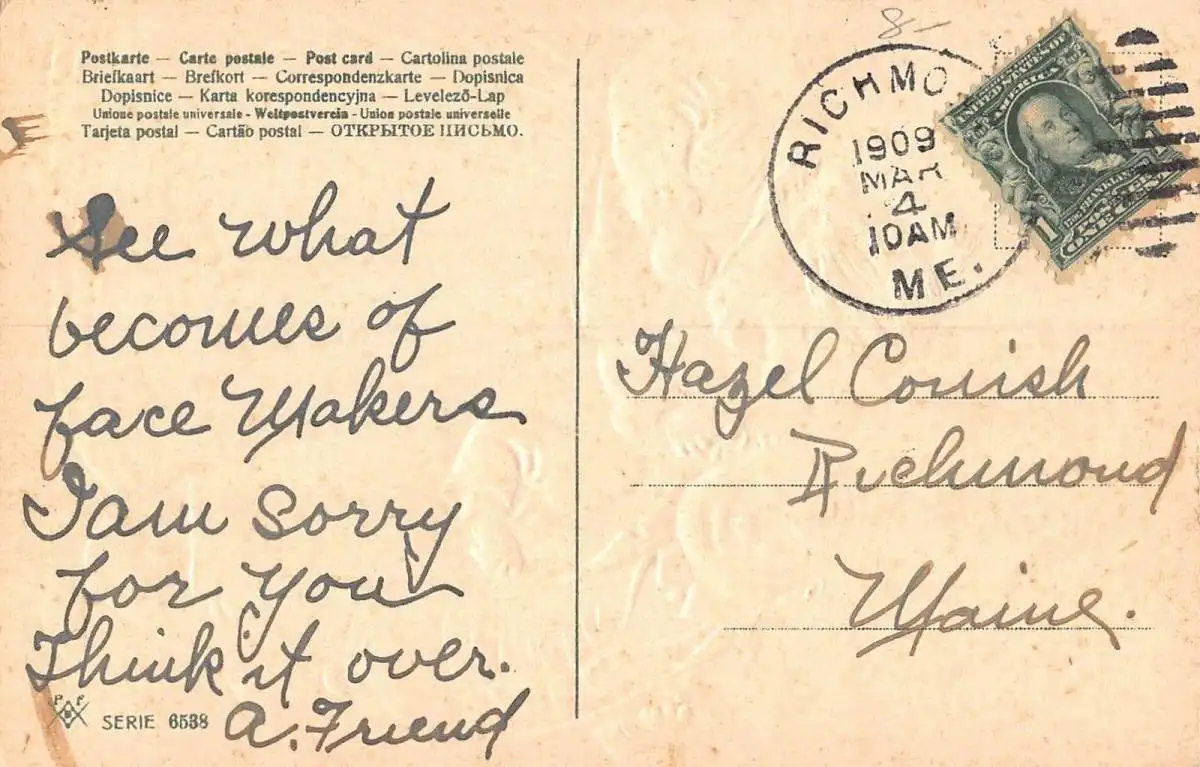 Postkarte — Carte postale — Post card — Cartolina postale
Briefkaart — Brefkort — Correspondenzkarte — Dopisnica
Dopisnice — Karta korespondencyjna — Levelező-Lap
Unione postale universale - Weltpostverein - Union postale universelle
Tarjeta postal — Cartão postal — ОТКРЫТОЕ ПИСЬМО.
See what
becomes of
face Makers
I am sorry
for you
Think it over.
A. Friend
P F
SERIE 6538
8-
RICHMO
1909
MAR
4
10AM
ME.
UNITED STATES OF
AMERICA
1
ONE CENT
Hazel Cornish
Richmond
Maine.